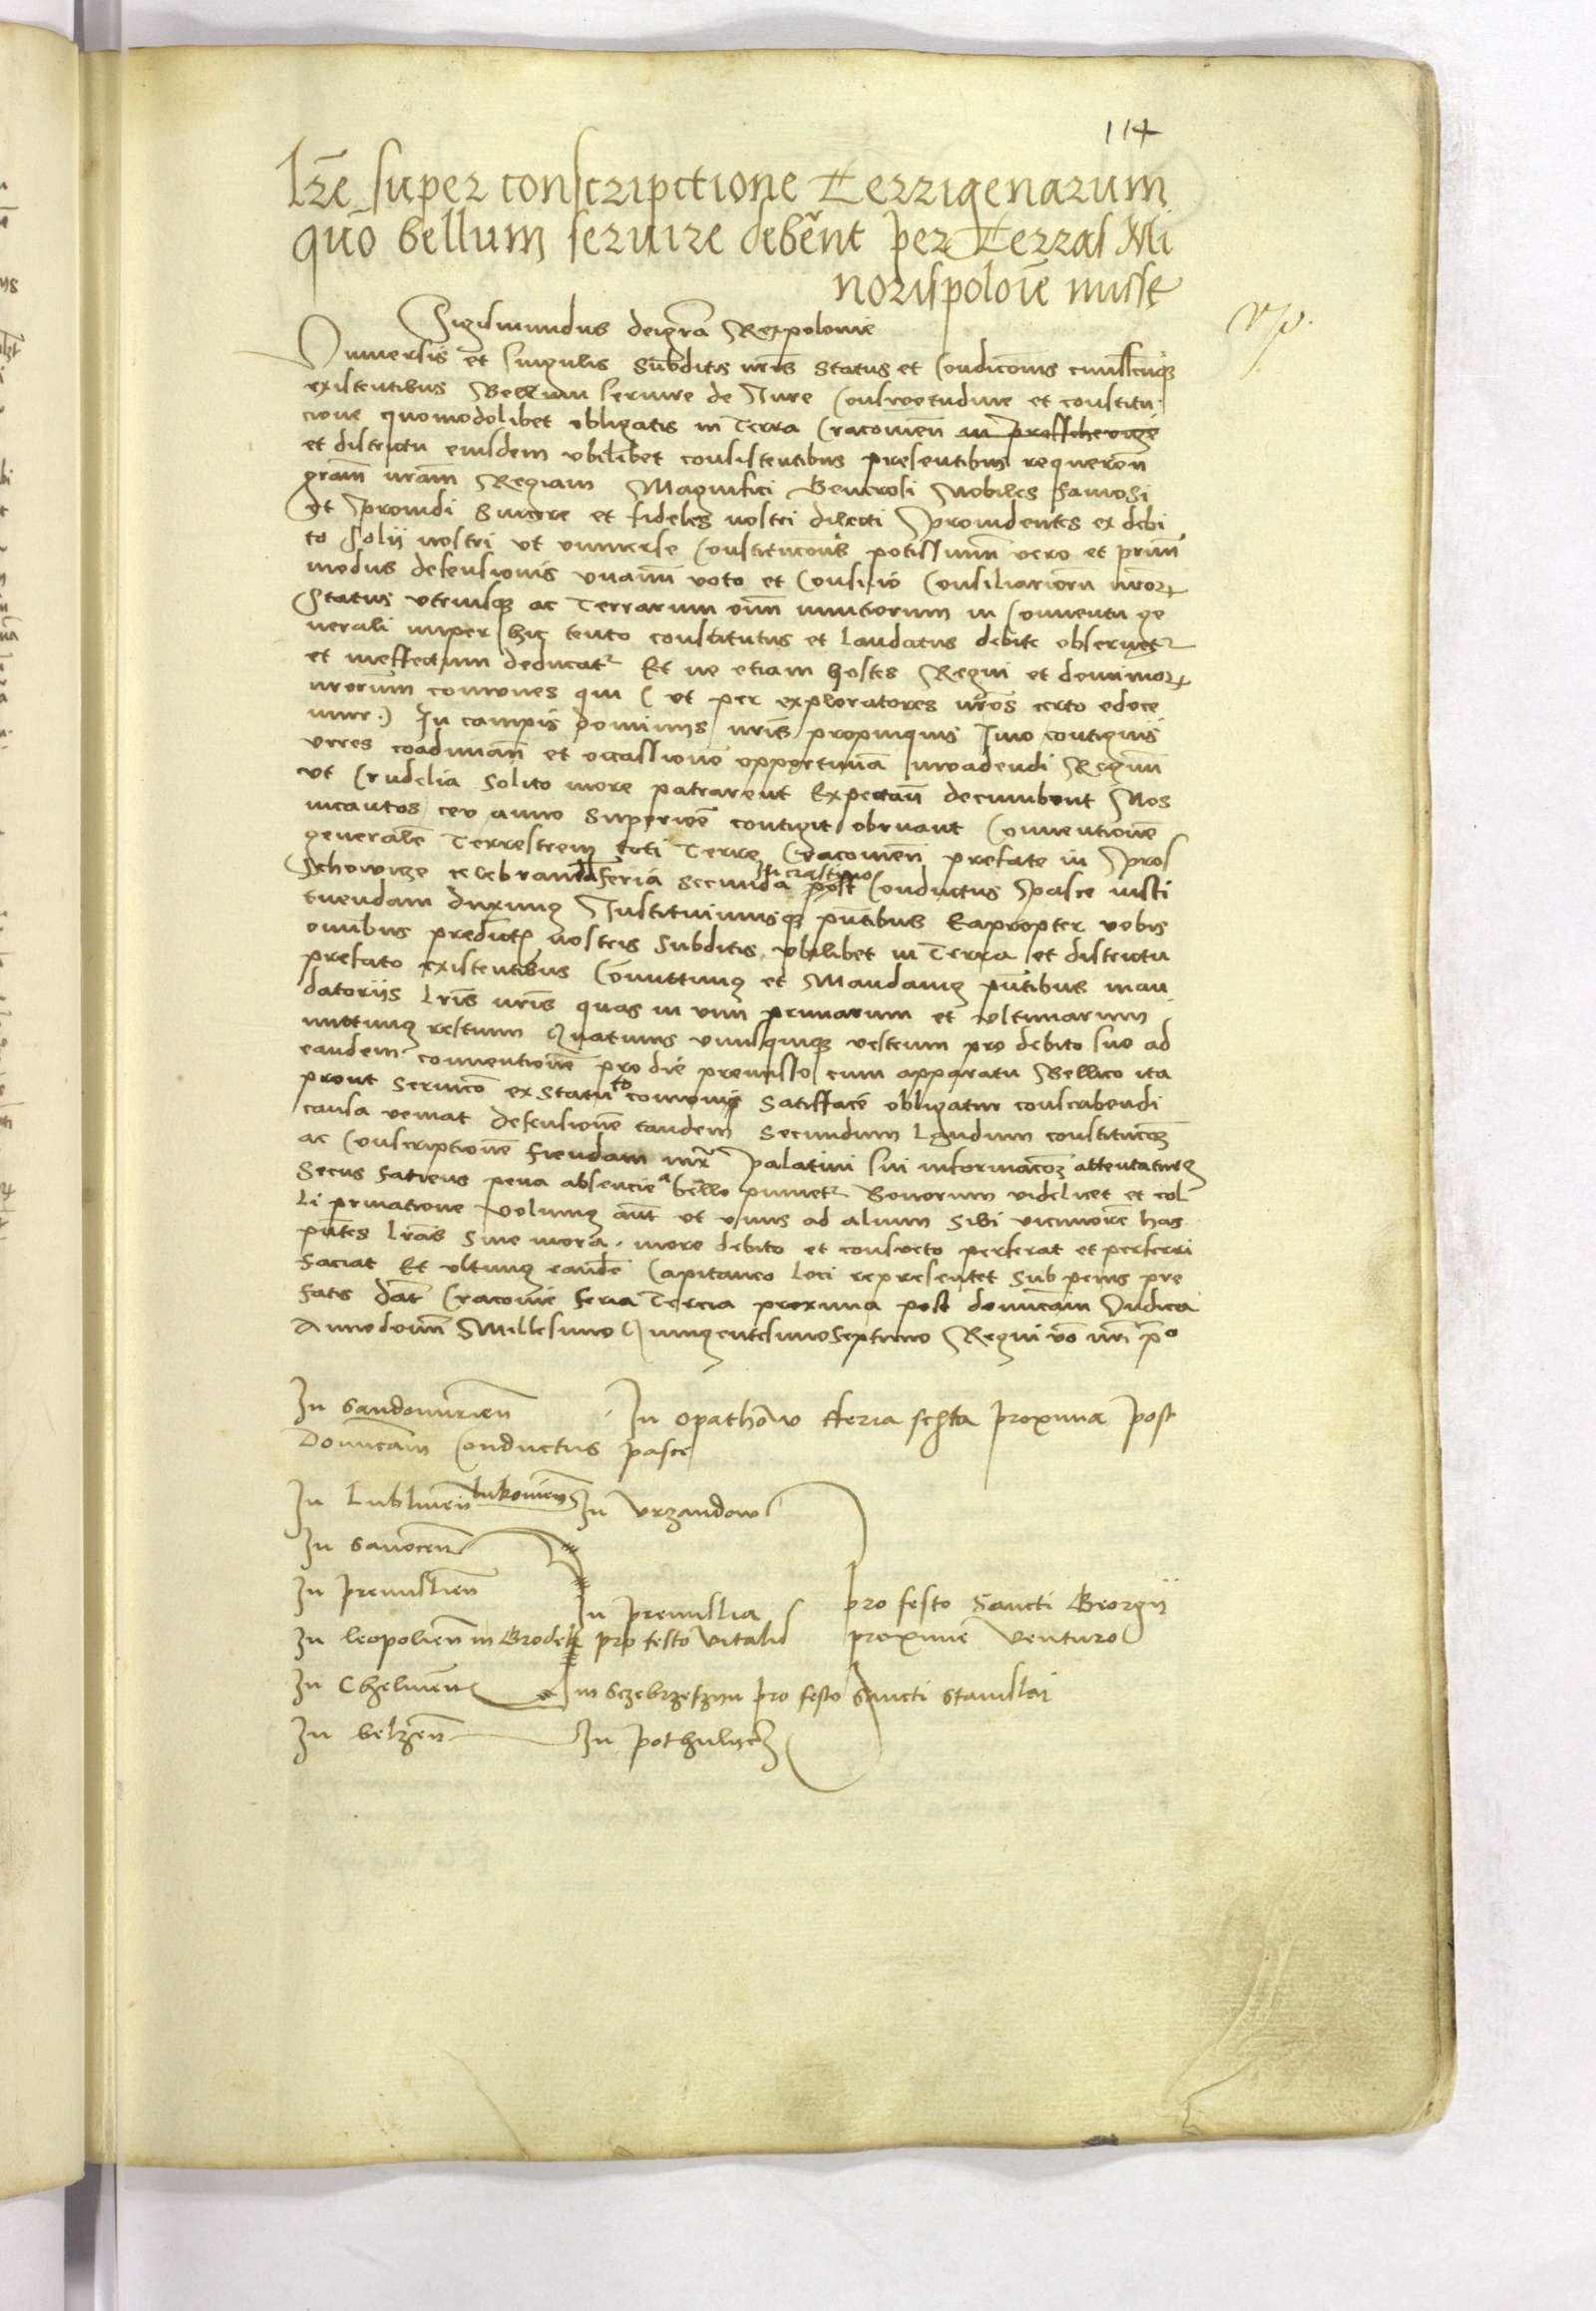 114
Lr̃e super conscripctione Terrigenarum
quō bellum seruire debēnt per Terras Mi
norispolonie misse
Sigismundus deigrã Rexpolonie
Vniuersis et singulis Subditis nr̃is Status et Condicionis cuiuscunqȝ
existentibus Bellum seruire de Iure Consuetudine et constitu
cione quomodolibet obligatis in Terra Cracouieñ in Prosschouicze
et districtu eiusdem vbilibet consistentibus presentibus requireñ
grãm nr̃am Regiam Magnifici Generosi Nobiles famosi
et Prouidi Sincere et fideles nostri dilecti Prouidentes ex debi
to Solij nostri vt vniuerse Constitucões potissimum vero et primũ
modus defensionis vnanimi voto et Consilio Consiliariorũ nr̃orꝝ
Status vtriusqȝ ac Terrarum oĩm nuntiorum in Conuentu ge
nerali nuper hic tento constitutus et laudatus debite obseruetʳ
et ineffectum deducatʳ Et ne etiam hostes Regni et dominiorꝝ
nr̃orum comunes qui (vt per exploratores nr̃os certo edoce
mur.) In campis dominijs nr̃is propinquis Imo contiguis
vires coadunañ et occassionẽ opportunã inuadendi Regnũ
vt Crudelia solito more patrarent Expectañ decumbunt Nos
incautos ceu anno Superiorẽ contigit obruant Conuentionẽ
generalẽ Terrestrem toti Terre Cracouieñ prefate in Pros
schowicze celebrandã feria secunda in crastino post Conductus Pasce insti
tuendam duximus Instituimusqȝ pñtibus Eapropter vobis
omnibus predictis nostris subditis vbilibet in Terra et districtu
prefato existentibus Cõmittimus et Mandamus pñtibus man
datorijs lr̃is nr̃is quas in vim primarum et vltimarum
mittimus restium Quatinus vnusquisqȝ vestrum pro debito suo ad
eandem conuentionẽ pro die premisso cum apparatu Bellico ita
prout seruicio ex statuto comunis satisfacẽ obligatur conscribendi
causa veniat defensionẽ tandem Secundum Laudum constitucõȝ
ac Conscriptionẽ fiendam iuxta Palatini sui informacõȝ attentaturus
Secus faciens pena absencie a bello punietʳ Bonorum videlicet et col
li priuatione Volumus aũt vt vnus ad alium sibi viciniorẽ has
pñtes lr̃as sine mora more debito et consueto perferat et perferri
faciat Et vltimus eandẽ Capitaneo loci representet sub penis pre
fatis dat̃ Cracouie feria Tercia proxima post dominicam Iudica
Annodomini Millesimo Quingentesimoseptimo Regni vo nr̃i p̃o
In Sandomirieñ In opathow fferia sexta proxima post
Dominicam Conductus pasce
In Lublineñ lukouieñ In Vrzandow
In Sanoceñ
In premislieñ
In premislia pro festo Sancti Georgij
In leopolieñ in Grodek pro festo Vitalis proxime Venturo
In Chelmeñ in Sczebrzeszyn pro festo Sancti Stanislai
In belzeñ In pothylicz